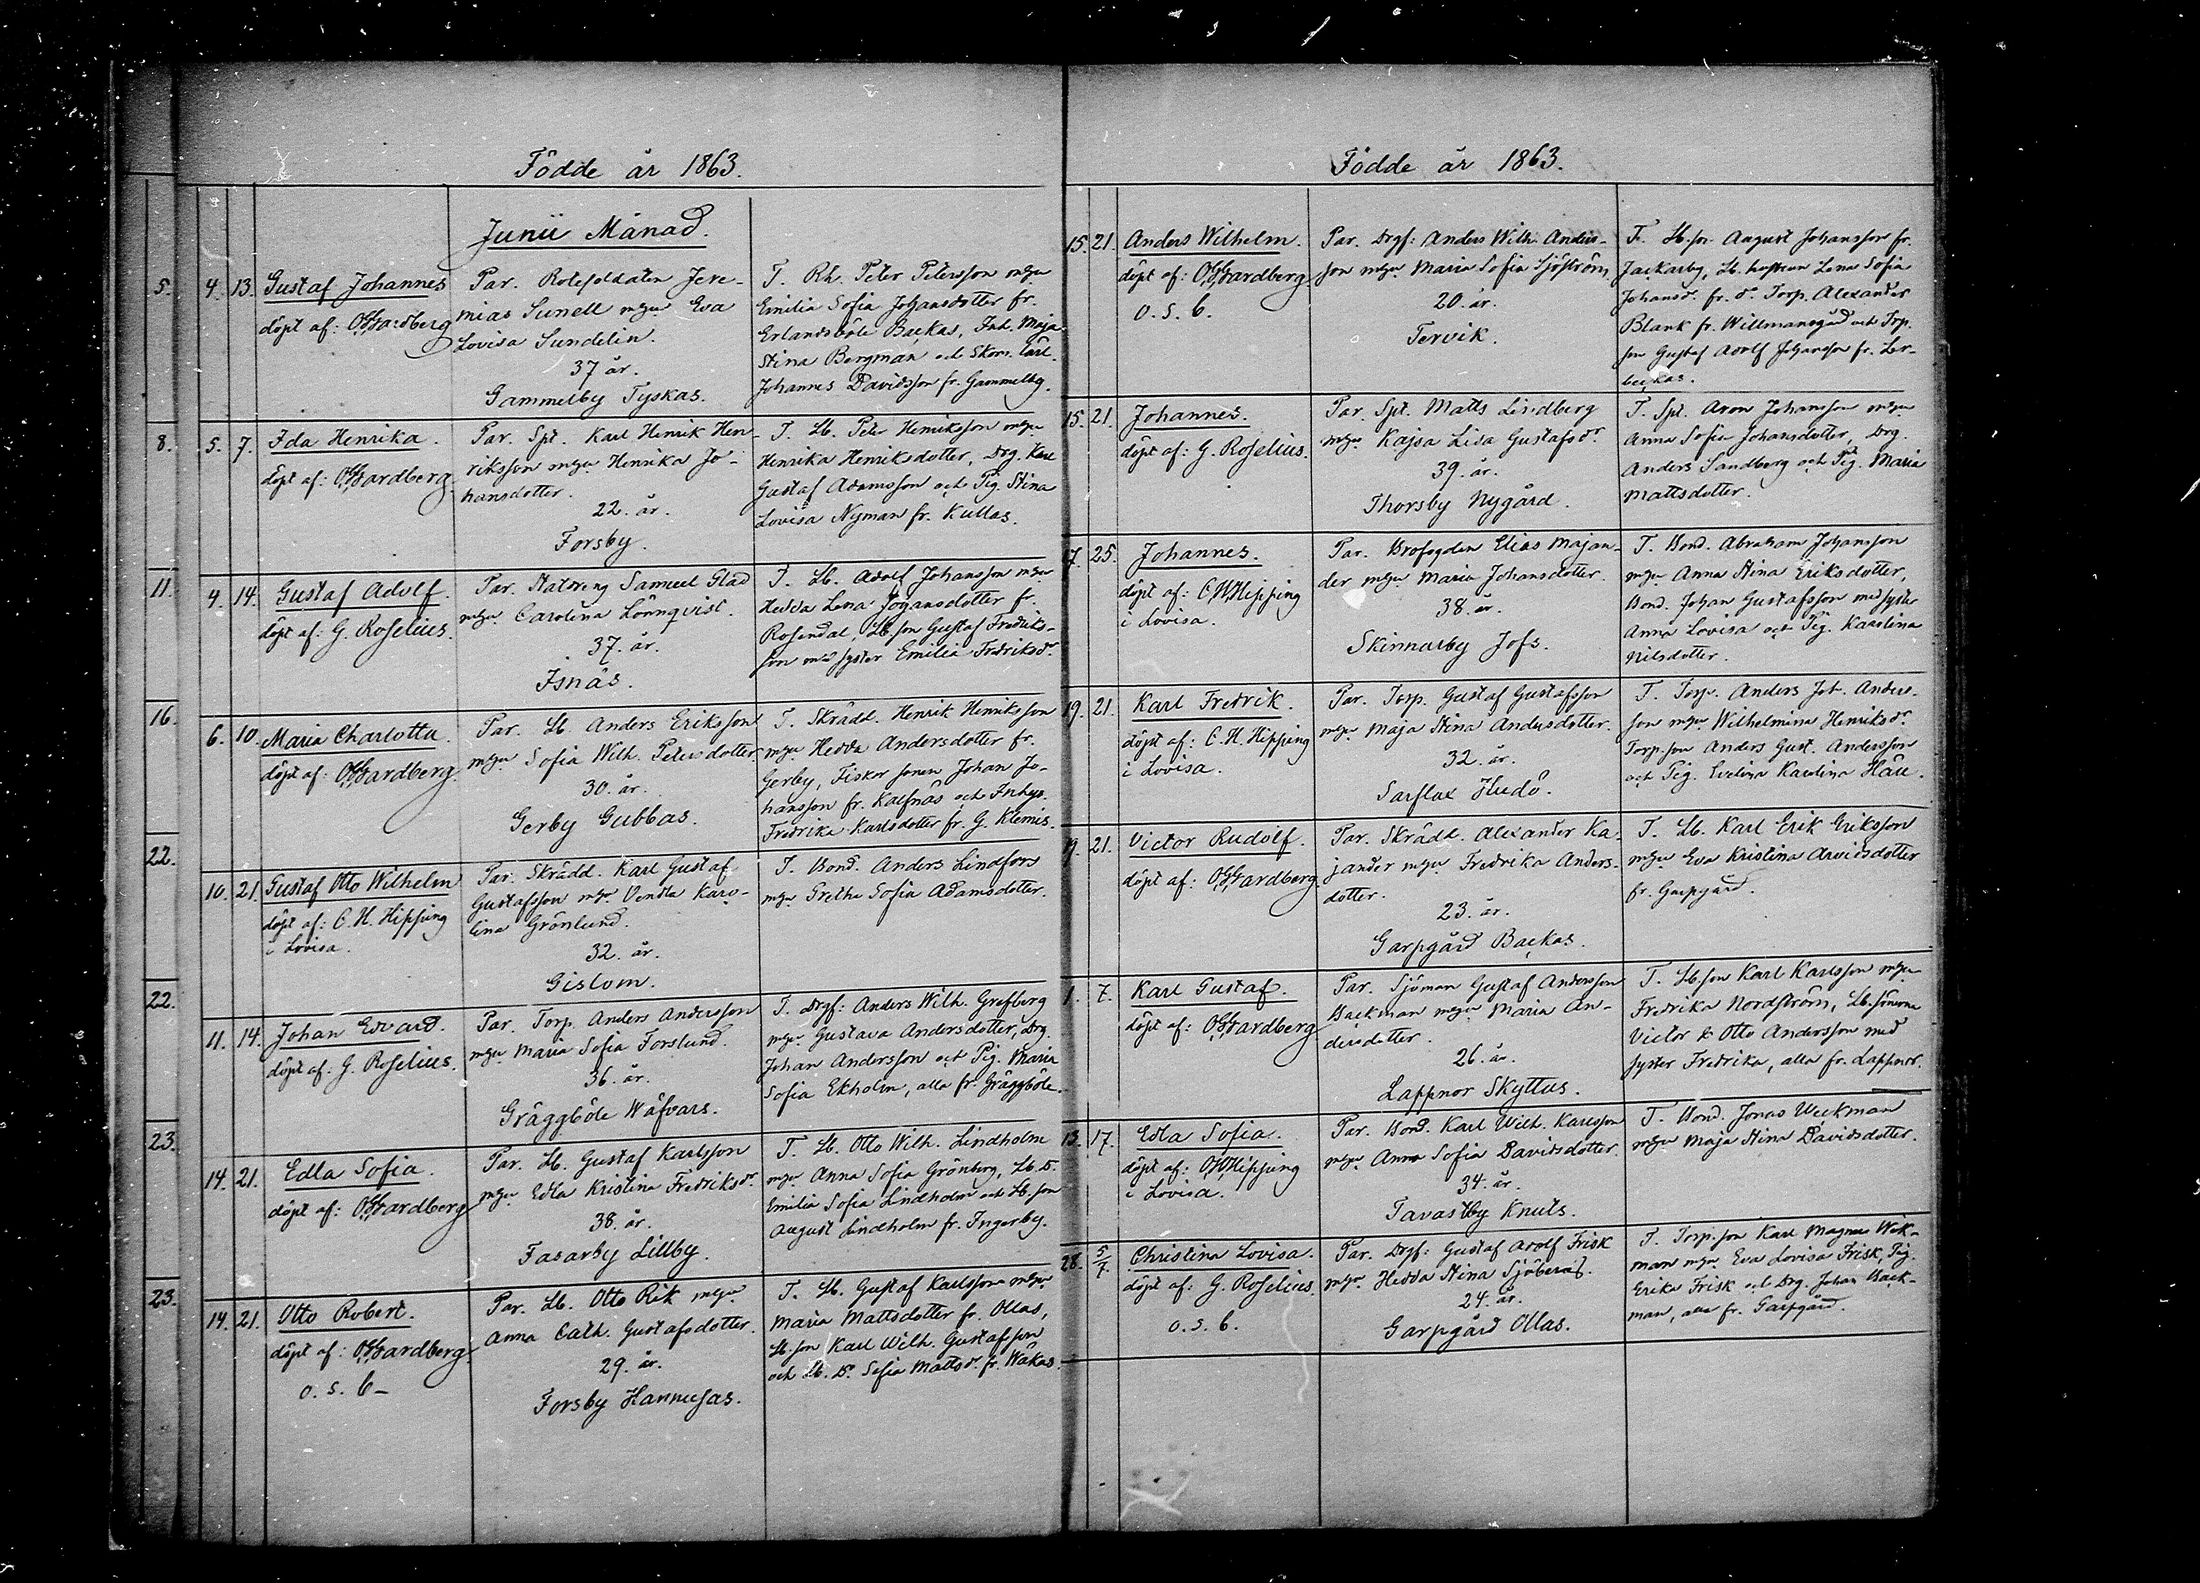 Födde år 1863.
Junii Månad.
5.
4. 13. Gustaf Johannes
döpt af: O.Hardberg
Par. Rotesoldaten Jere-
mias Sunell m hu Eva
Lovisa Sundelin.
37 år.
Gammelby Tyskas.
T. Rh. Peter Petersson m hu
Emilia Sofia Johansdotter fr.
Erlandsböle Backas, Inh. Maja
Stina Bergman och Skom. Carl
Johannes Davidsson fr. Gammelby.
8.
5. 7. Ida Henrika.
döpt af: O.Hardberg
Par. Spt. Karl Henrik Hen-
riksson m hu Henrika Jo-
hansdotter.
22. år.
Forsby.
T. Lb. Peter Henriksson m hu
Henrika Henriksdotter, Drg. Karl
Gustaf Adamsson och Pig. Stina
Lovisa Nyman fr. Kullas.
11.
4. 14. Gustaf Adolf.
döpt af: G. Roselius.
Par. Statdreng Samuel Glad
m hu Carolina Lönnqvist.
37. år.
Isnäs.
T. Lb. Adolf Johansson m hu
Hedda Lena Johansdotter fr.
Rosendal, Lb. son Gustaf Fredriks-
son med syster Emilia Fredriksdr.
16.
6. 10. Maria Charlotta.
döpt af: O.Hardberg.
Par. Lb. Anders Eriksson
m hu Sofia Wilh. Petersdotter
30. år.
Gerby Gubbas.
T. Skrädd. Henrik Henriksson
m hu Hedda Andersdotter fr.
Gerby, Fiskar sonen Johan Jo-
hansson fr. Kalfnäs och Inhys.
Fredrika Karlsdotter fr. G. Klemis.
22.
10. 21. Gustaf Otto Wilhelm
döpt af: C. H. Hipping
i Lovisa.
Par. Skrädd. Karl Gustaf
Gustafsson m hu Vendla Karo-
lina Grönlund.
32. år.
Gislom.
T. Bond. Anders Lindfors
m hu Gretha Sofia Adamsdotter.
22.
11. 14. Johan Edvard.
döpt af: G. Roselius.
Par. Torp. Anders Andersson
m hu Maria Sofia Forslund.
36. år.
Gräggböle Wäfvars.
T. Drgf: Anders Wilh. Grefberg
m hu Gustava Andersdotter, Drg.
Johan Andersson och Pig. Maria
Sofia Ekholm, alla fr. Gräggböle.
23.
14. 21. Edla Sofia.
döpt af: O.Hardberg
Par. Lb. Gustaf Karlsson
m hu Edla Kristina Fredriksdr.
38. år.
Fasarby Lillby.
T. Lb. Otto Wilh. Lindholm
m hu Anna Sofia Grönberg, Lb. D.
Emilia Sofia Lindholm och Lb. son
August Lindholm fr. Ingerby.
23.
14. 21. Otto Robert.
döpt af: O.Hardberg
o. s. b-
Par. Lb. Otto Rik m hu
Anna Cath. Gustafsdotter.
29. år.
Forsby Hannusas.
T. Lb. Gustaf Karlsson m hu
Maria Mattsdotter fr. Ollas,
Lb. son Karl Wilh. Gustafsson
och Lb. D. Sofia Mattsdr. fr. Wäkas.
Födde år 1863.
15. 21. Anders Wilhelm.
döpt af: O.Hardberg
o. s. b.
Par. Drgf: Anders Wilh. Anders-
son m hu Maria Sofia Sjöström
20. år.
Tervik.
T. Lb. son August Johansson fr.
Jackarby, Lb. hustrun Lena Sofia
Johansdr. fr. do. Torp. Alexander
Blank fr. Willmansgård och Torp.
son Gustaf Adolf Johansson fr. Ler-
backas.
15. 21. Johannes.
döpt af: G. Roselius.
Par. Spt. Matts Lindberg
m hu Kajsa Lisa Gustafsdr.
39. år.
Thorsby Nygård.
T. Spt. Aron Johansson m hu
Anna Sofia Johansdotter, Drg.
Anders Sandberg och Pig. Maria
Mattsdotter.
17. 25. Johannes.
döpt af: C.H.Hipping
i Lovisa.
Par. Brofogden Elias Majan-
der m hu Maria Johansdotter.
38. år.
Skinnarby Jofs.
T. Bond. Abraham Johansson
m hu Anna Stina Eriksdotter,
Bond. Johan Gustafsson med syster
Anna Lovisa och Pig. Karolina
Nilsdotter.
19. 21. Karl Fredrik.
döpt af: C. H. Hipping
i Lovisa.
Par. Torp. Gustaf Gustafsson
m hu Maja Stina Andersdotter.
32. år.
Sarflax Hudö.
T. Torp. Anders Joh. Anders-
son m hu Wilhelmina Henriksdr.
Torp. son Anders Gust. Andersson
och Pig. Evelina Karolina Häll.
19. 21. Victor Rudolf.
döpt af: O.Hardberg
Par. Skrädd. Alexander Ka-
jander m hu Fredrika Anders-
dotter.
23. år.
Garpgård Backas.
T. Lb. Karl Erik Eriksson
m hu Eva Kristina Arvidsdotter
fr. Garpgård.
1. 7. Karl Gustaf.
döpt af: O.Hardberg
Par. Sjöman Gustaf Andersson
Backman m hu Maria An-
dersdotter.
26. år.
Lappnor Skyttus.
T. Lb. son Karl Karlsson m hu
Fredrika Nordström, Lb. sönerna
Victor & Otto Andersson med
syster Fredrika, alla fr. Lappnor.
13. 17. Edla Sofia.
döpt af: C.H.Hipping
i Lovisa.
Par. Bond. Karl Wilh. Karlsson
m hu Anna Sofia Davidsdotter.
34. år.
Tavastby Knuts.
T. Bond. Jonas Weckman
m hu Maja Stina Davidsdotter.
28. 5/7 Christina Lovisa.
döpt af: G. Roselius.
o. s. b.
Par. Drgf: Gustaf Adolf Frisk
m hu Hedda Stina Sjöberg.
24. år.
Garpgård Ollas.
T. Torp. son Karl Magnus Wek-
man m hu Eva Lovisa Frisk, Pig.
Erika Frisk och Drg. Johan Back-
man, alla fr. Garpgård.